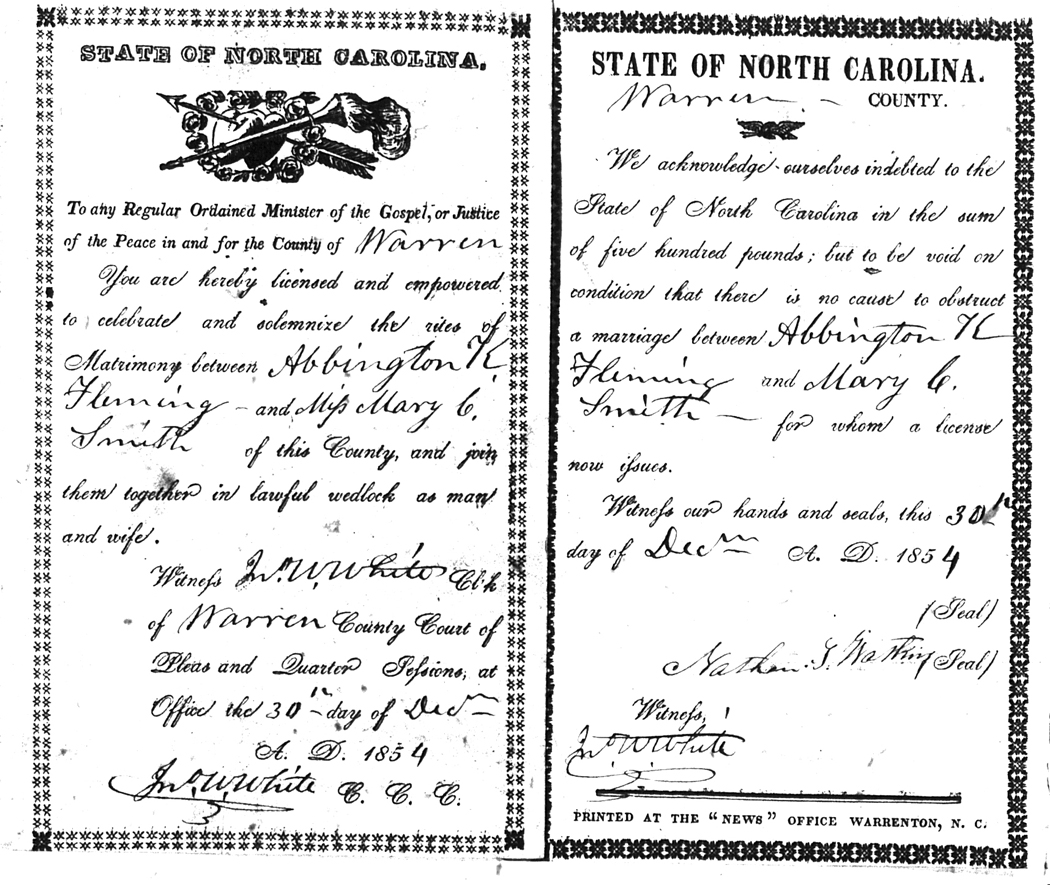 STATE OF NORTH CAROLINA.
To any Regular Ordained Minister of the Gospel, or Justice
of the Peace in and for the County of Warren
You are hereby licensed and empowered
to celebrate and solemnize the rites of
Matrimony between Abbington K
Fleming - and Miſs Mary C.
Smith of this County, and join
them together in lawful wedlock as man
and wife.
Witneſs Jno. W. White Clk
of Warren County Court of
Pleas and Quarter Seſsions, at
Office the 30th day of Decm
A. D. 1854
Jno. W. White C. C. C.
STATE OF NORTH CAROLINA.
Warren - COUNTY.
We acknowledge ourselves indebted to the
State of North Carolina in the sum
of five hundred pounds; but to be void on
condition that there is no cause to obstruct
a marriage between Abbington K
Fleming and Mary C.
Smith - for whom a license
now iſsues.
Witneſs our hands and seals, this 30th
day of Decm A. D. 1854
(Seal)
Nathan (Seal)
Witneſs,
Jno. W. White
PRINTED AT THE "NEWS" OFFICE WARRENTON, N. C.